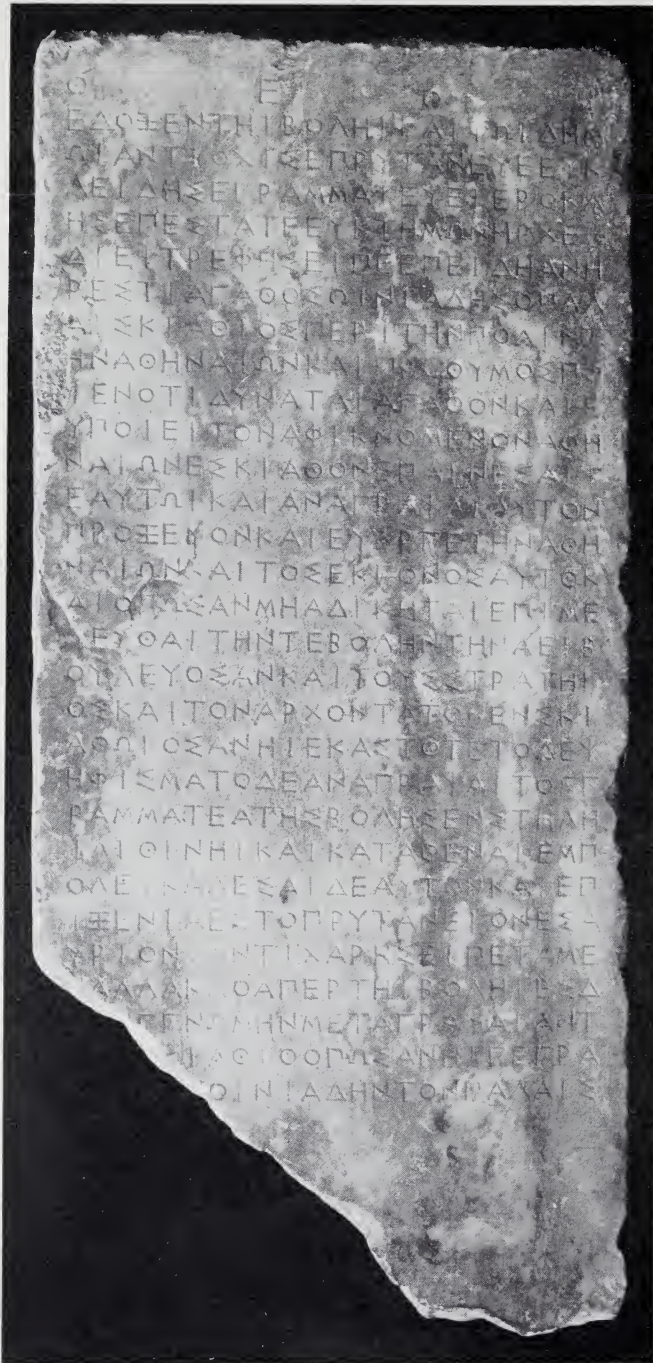 Θ Ε Ο Ι
ΕΔΟΞΕΝΤΗΙΒΟΛΗΙΚΑΙΤΩΙΔΗΜ
ΩΙΑΝΤΙΟΧΙΣΕΠΡΥΤΑΝΕΥΕΕΥΚ
ΛΕΙΔΗΣΕΓΡΑΜΜΑΤΕΥΕΙΕΡΟΚΛ
ΗΣΕΠΕΣΤΑΤΕΕΥΚΤΗΜΩΝΗΡΧΕ
ΔΙΕΙΤΡΕΦΗΣΕΙΠΕΕΠΕΙΔΗΑΝΗ
ΡΕΣΤΙΑΓΑΘΟΣΟΙΝΙΑΔΗΣΟΠΑΛ
ΑΙΣΚΙΑΘΙΟΣΠΕΡΙΤΗΝΠΟΛΙΝΤ
ΗΝΑΘΗΝΑΙΩΝΚΑΙΠΡΟΘΥΜΟΣΠΟ
ΙΕΝΟΤΙΔΥΝΑΤΑΙΑΓΑΘΟΝΚΑΙΕ
ΥΠΟΙΕΙΤΟΝΑΦΙΚΝΟΜΕΝΟΝΑΘΗ
ΝΑΙΩΝΕΣΚΙΑΘΟΝΕΠΑΙΝΕΣΑΙΤ
ΕΑΥΤΩΙΚΑΙΑΝΑΓΡΑΨΑΙΑΥΤΟΝ
ΠΡΟΞΕΝΟΝΚΑΙΕΥΕΡΓΕΤΗΝΑΘΗ
ΝΑΙΩΝΚΑΙΤΟΣΕΚΓΟΝΟΣΑΥΤΟΚ
ΑΙΟΠΩΣΑΝΜΗΑΔΙΚΗΤΑΙΕΠΙΜΕ
ΛΕΣΘΑΙΤΗΝΤΕΒΟΛΗΝΤΗΝΑΕΙΒ
ΟΥΛΕΥΟΣΑΝΚΑΙΤΟΥΣΣΤΡΑΤΗΓ
ΟΣΚΑΙΤΟΝΑΡΧΟΝΤΑΤΟΝΕΝΣΚΙ
ΑΘΩΙΟΣΑΝΗΙΕΚΑΣΤΟΤΕΤΟΔΕΨ
ΗΦΙΣΜΑΤΟΔΕΑΝΑΓΡΑΨΑΙΤΟΓΓ
ΡΑΜΜΑΤΕΑΤΗΣΒΟΛΗΣΕΝΣΤΗΛΗ
ΙΛΙΘΙΝΗΙΚΑΙΚΑΤΑΘΕΝΑΙΕΜΠ
ΟΛΕΙΚΑΛΕΣΑΙΔΕΑΥΤΟΝΚΑΙΕΠ
ΙΞΕΝΙΑΕΣΤΟΠΡΥΤΑΝΕΙΟΝΕΣΑ
ΥΡΙΟΝΑΝΤΙΧΑΡΗΣΕΙΠΕΤΑΜΕ
ΑΛΛΑΚΑΘΑΠΕΡΤΗΙΒΟΛΗΙΕΣΔ
ΓΝΩΜΗΝΜΕΤΑΓΡΑΨΑΙΑΝΤ
ΙΑΘΙΟΟΠΩΣΑΝΗΙΓΕΓΡΑ
ΟΙΝΙΑΔΗΝΤΟΝΠΑΛΑΙΣ